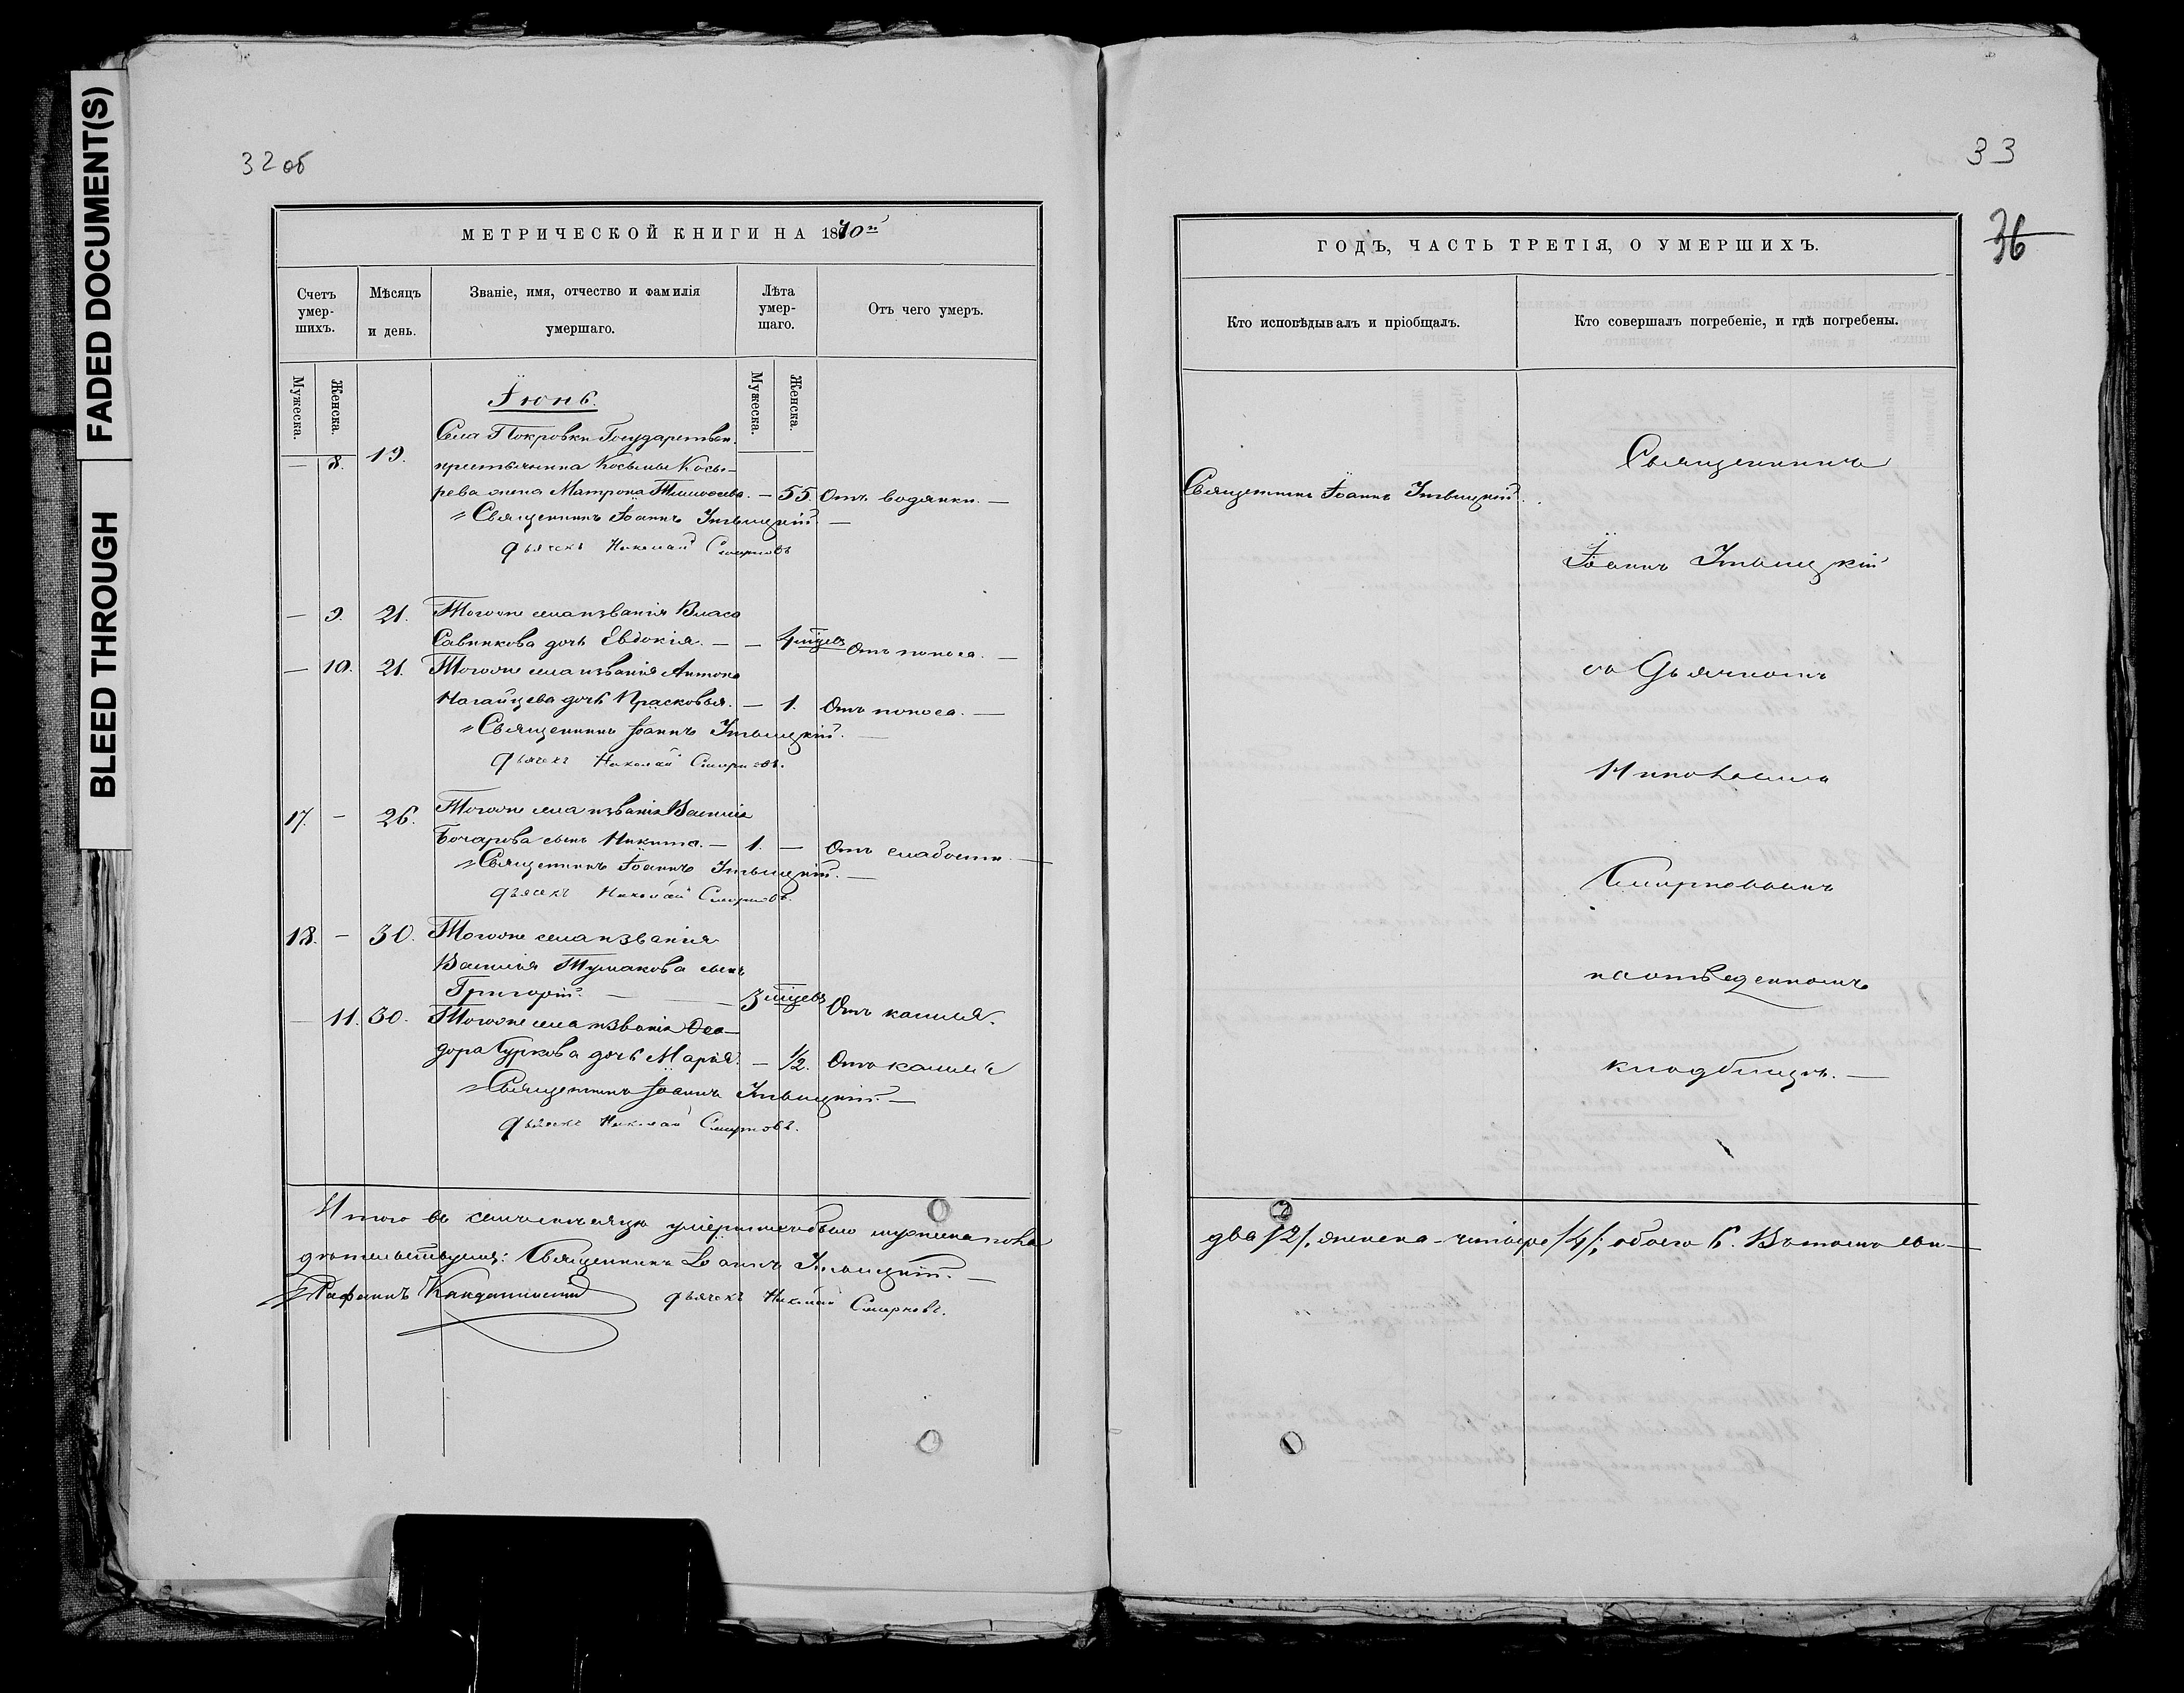 FADED DOCUMENT(S)
BLEED THROUGH
32 об
МЕТРИЧЕСКОЙ КНИГИ НА 1870й
Счетъ умер-шихъ.
Мѣсяцъ и день.
Званіе, имя, отчество и фамилія умершаго.
Лѣта умер-шаго.
Отъ чего умеръ.
Мужеска.
Женска.
Мужеска.
Женска.
Іюнь.
Села Покровки Государствен.
— 8. 19. крестьянина Косьмы Косы-
рева жена Матрона Тимоѳева. — 55. Отъ водянки. —
Священникъ Іоаннъ
дьячекъ Николай Смирновъ
— 9. 21. Того же села и званія Власа
Савинкова дочь Евдокія. — — 4 мѣсцев Отъ поноса. —
— 10. 21. Того же села и званія Антона
Нагайцева дочь Прасковья. — 1. Отъ поноса. —
Священникъ Іоаннъ
дьячекъ Николай Смирновъ.
17. — 26. Того же села и званія Василія
Бочарова сынъ Никита. — 1. — Отъ слабости —
Священникъ Іоаннъ
дьячекъ Николай Смирновъ.
18. — 30. Того же села и званія
Василія Тумакова сынъ
Григорій. — — 3 мѣсцев Отъ кашля.
— 11. 30. Того же села и званія Ѳео-
дора Гуркова дочь Марія. — 1/2. Отъ кашля
Священникъ Іоаннъ
дьячекъ Николай Смирновъ.
Итого въ семъ месяце умершихъ было мужеска пола
детельствуемъ: Священникъ Іоаннъ
дьячекъ Николай Смирновъ.
33
36
ГОДЪ, ЧАСТЬ ТРЕТІЯ, О УМЕРШИХЪ.
Кто исповѣдывалъ и пріобщалъ.
Кто совершалъ погребеніе, и гдѣ погребены.
Священникъ Іоаннъ
Священникъ
Іоаннъ
съ Дьячкомъ
Николаемъ
Смирновымъ
на отведенномъ
кладбищѣ. —
два /2/, женска — четыре /4/; обоего 6. Въ томъ сви-